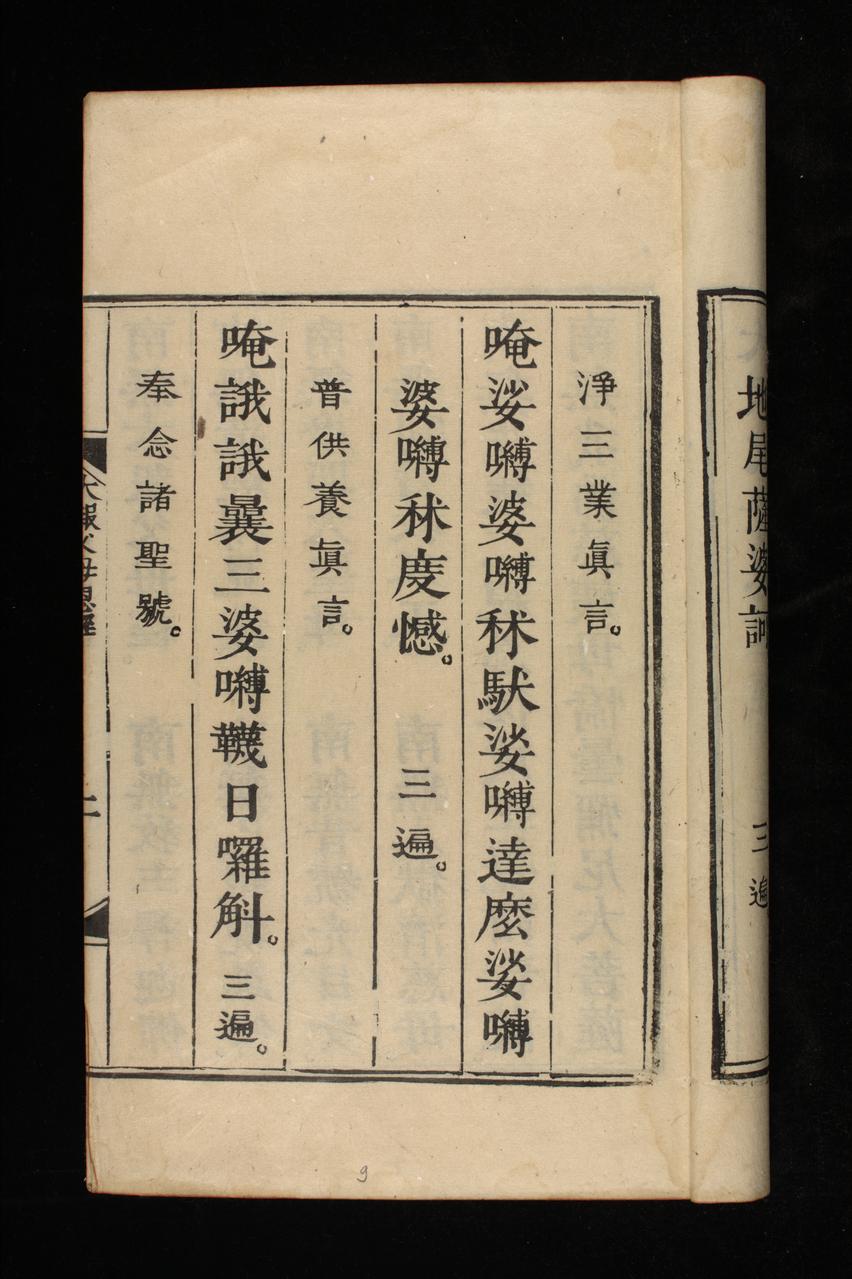 地尾薩婆訶 三遍
淨三業眞言。
唵娑嚩婆嚩秫馱娑嚩達麽娑嚩
婆嚩秫度憾。 三遍。
普供養眞言。
唵誐誐曩三婆嚩韈日囉斛。 三遍。
奉念諸聖號。
大報父母恩經
9